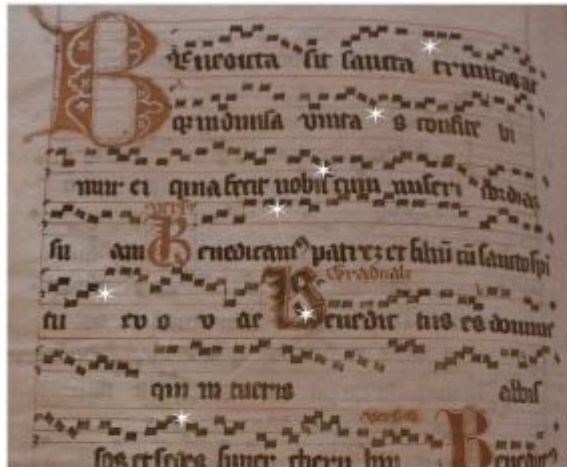 Benedicta sit sancta trinitas at
q indiuisa unita s confite bi
mur ei quia fecit nobiscum miseri cordias
su am Benedicam patrez et filiu cu sancto spi
Graduale
tu eu o u ae Benedic tus es domine
qui in tueris abiss
sos et sedes super cheru bin Benedic